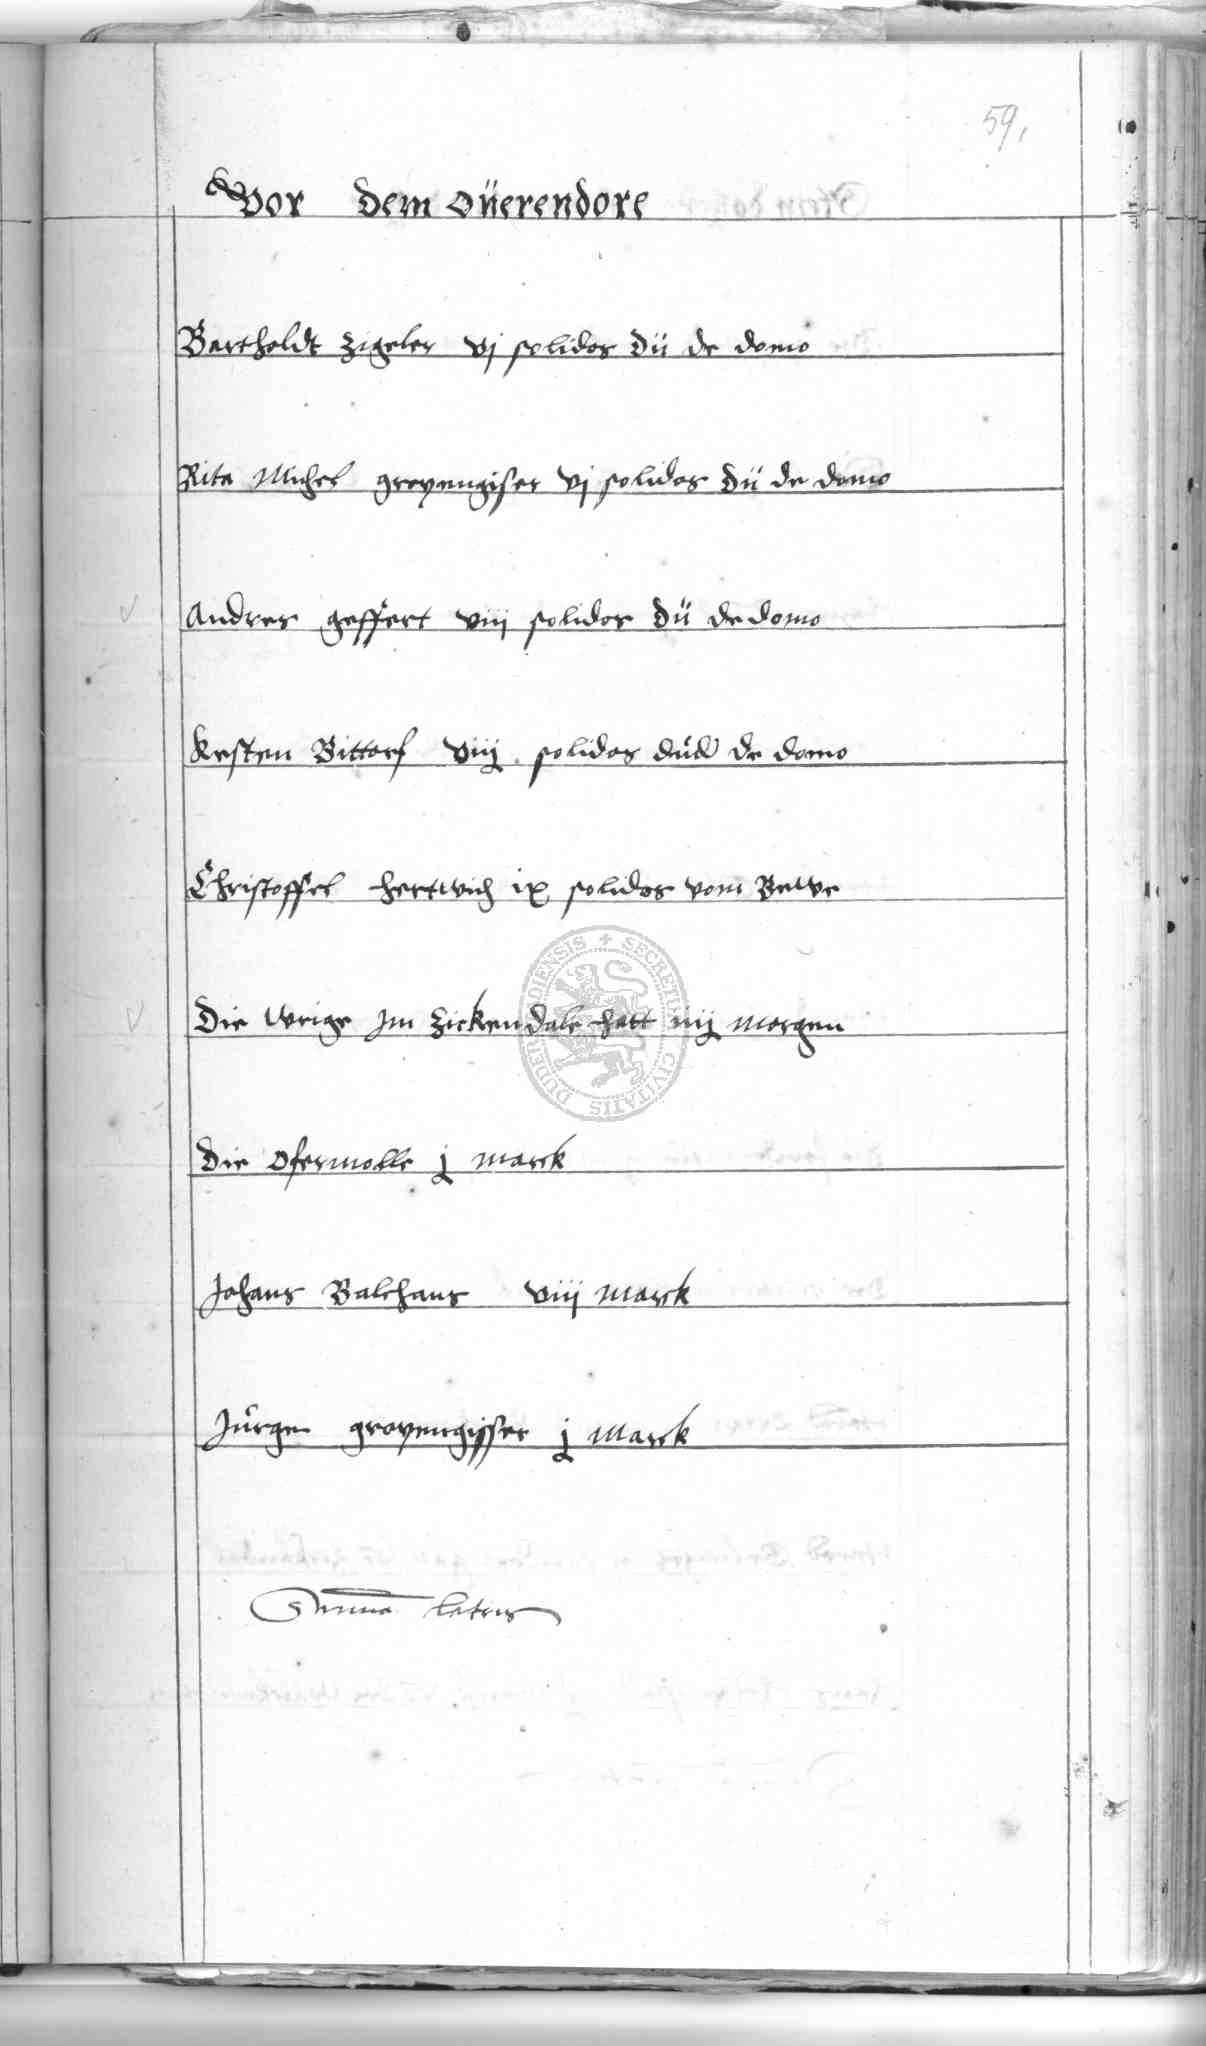 59.
Vor dem Oüerendore
Bartholdt Zigeler vj solidos dü de domo
Rita Michel gropengiser vj solidos dü de domo
Andres Geffert viij solidos dü de domo
Kersten Bittorf viij solidos düd de domo
Christoffel Hertwich ix solidos vom
Die Weige Im Zickendale hatt iiij morgen
Die Ofermolle j marck
Johans Balthaus viij Marck
Jürgen gropengisser j Marck
Summa lateris
SECRETU CIVITATIS DUDERSTADIENSIS